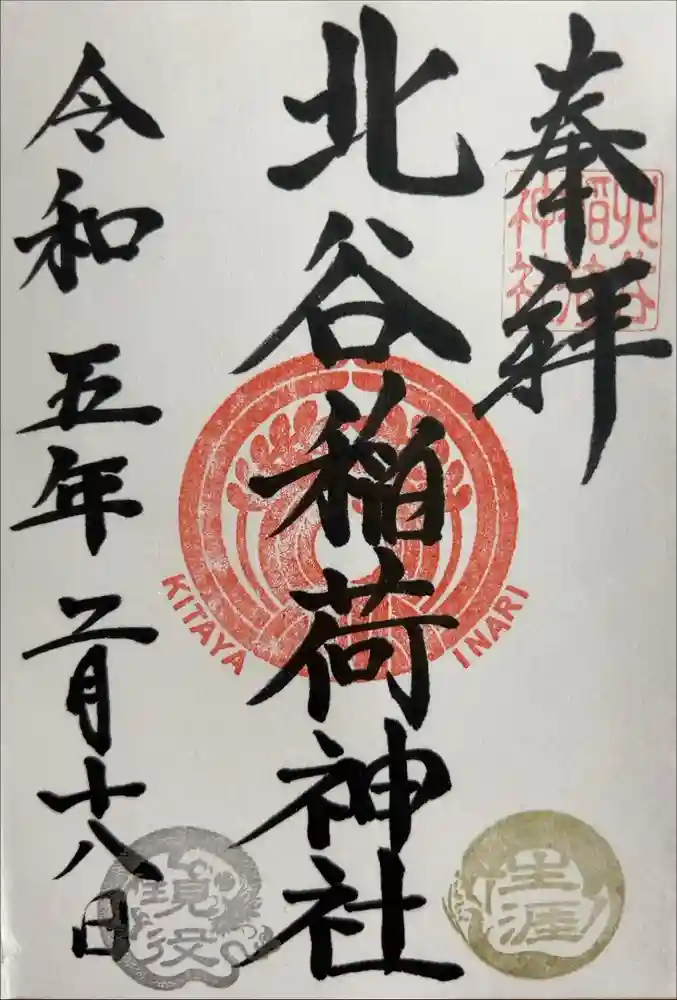 奉拝
北谷稲荷神社
令和五年二月十八日
北谷稲荷神社
KITAYA INARI
生涯
現役